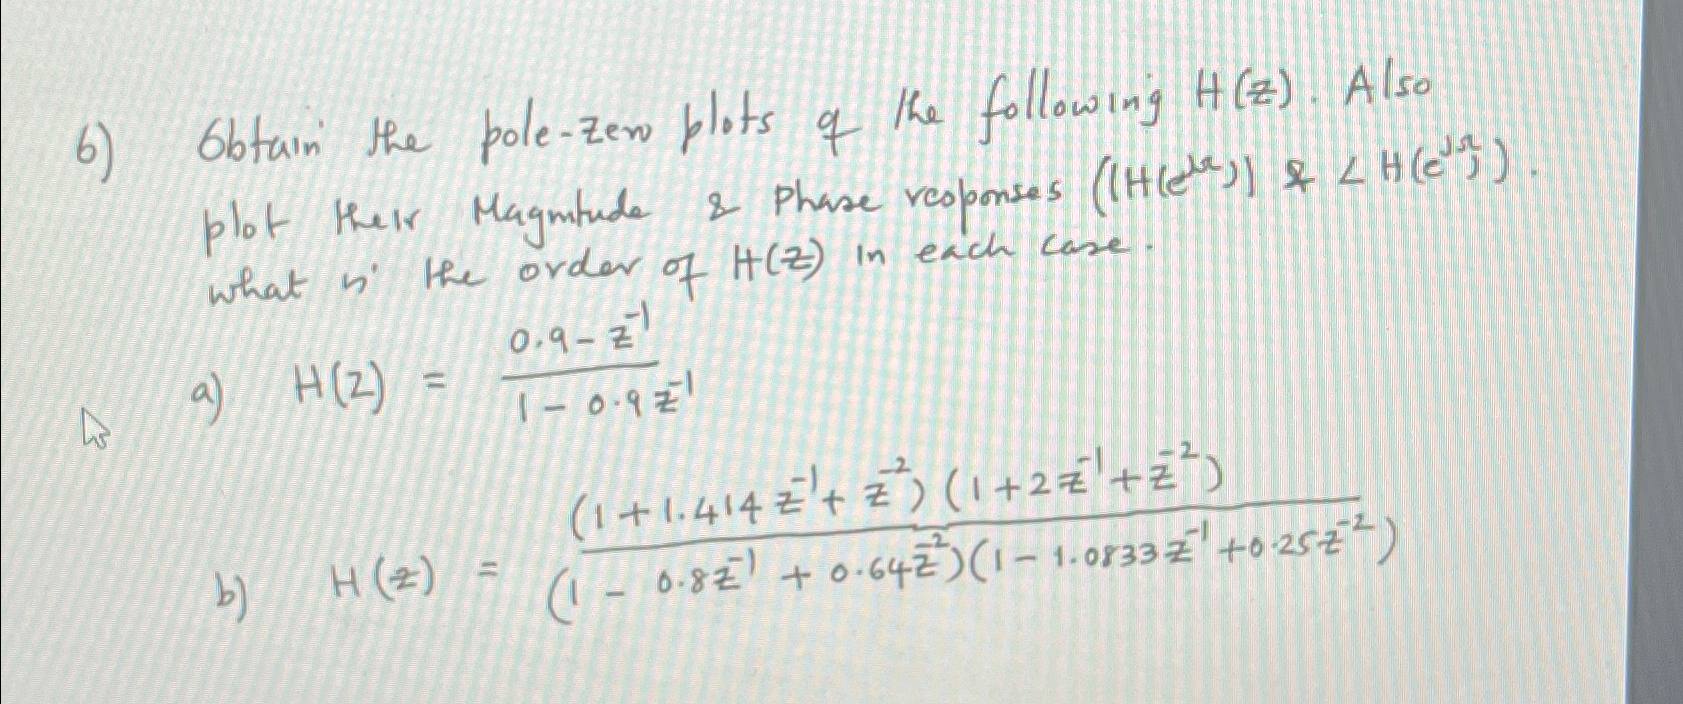 6) Obtain the pole-zero plots of the following H(z). Also
plot their Magnitude & Phase responses (|H(e^{jΩ})| & ∠H(e^{jΩ})).
what is the order of H(z) in each case.
a) H(z) = (0.9 - z^{-1}) / (1 - 0.9z^{-1})
b) H(z) = (1 + 1.414z^{-1} + z^{-2})(1 + 2z^{-1} + z^{-2}) / (1 - 0.8z^{-1} + 0.64z^{-2})(1 - 1.0833z^{-1} + 0.25z^{-2})